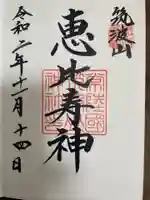 筑波山
恵比寿神
令和二年十一月十四日